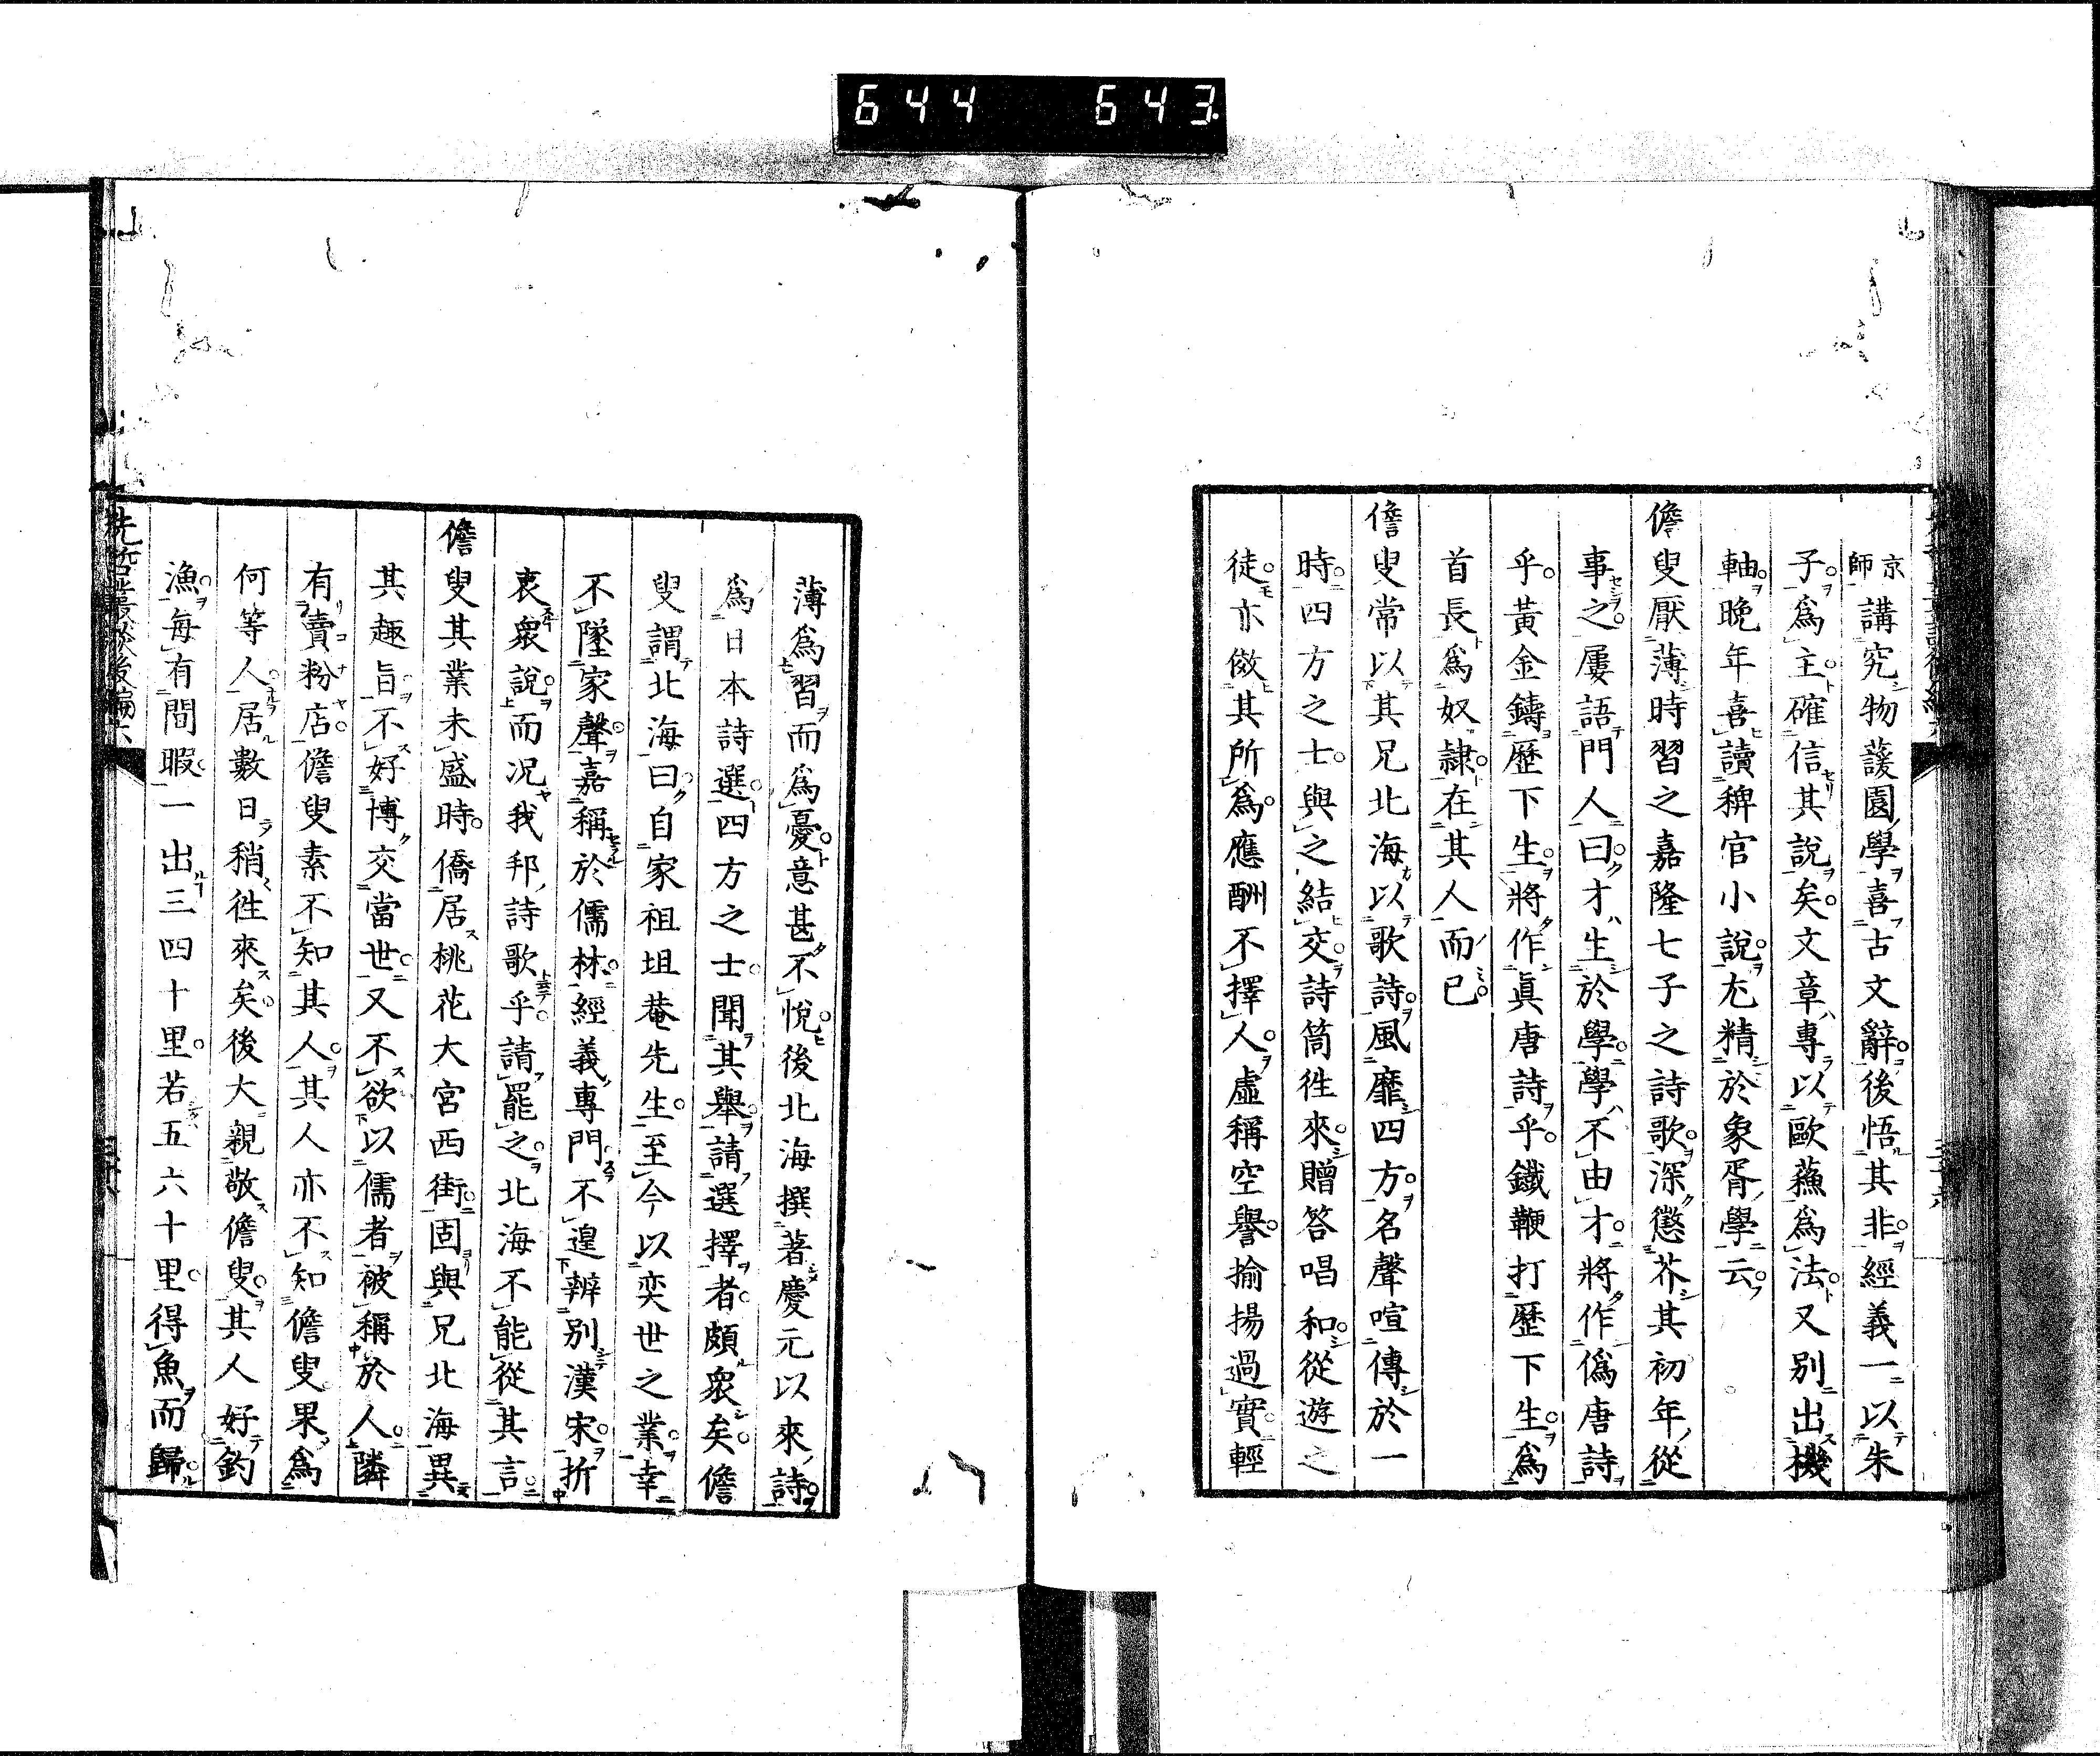 644 643
京師講究物護園學喜古文辭後悟其非經義一以朱
子爲主確信其說矣文章專以歐蘓爲法又别出機
軸晚年喜讀稗官小說尤精於象胥學云
儋叟厭薄時習之嘉隆七子之詩歌深懲芥其初年從
事之屢語門人曰才生於學學不由才將作僞唐詩
乎黃金鑄歷下生將作眞唐詩乎鐵鞭打歷下生爲
首長爲奴隷在其人而已
儋叟常以其兄北海以歌詩風靡四方名聲喧傳於一
時四方之士與之結交詩筒徃來贈答唱和從遊之
徒亦傚其所爲應酬不擇人虛稱空譽揄揚過實輕
薄爲習而爲憂意甚不悅後北海撰著慶元以來詩
爲日本詩選四方之士聞其舉請選擇者頗衆矣儋
叟謂北海曰自家祖坦菴先生至今以奕世之業幸
不墜家聲嘉稱於儒林經義專門不遑辨别漢宋折
衷衆說而况我邦詩歌乎請罷之北海不能從其言
儋叟其業未盛時僑居桃花大宮西街固與兄北海異
其趣旨不好博交當世又不欲以儒者被稱於人隣
有賣粉店儋叟素不知其人其人亦不知儋叟果爲
何等人人居數日稍徃來矣後大親敬儋叟其人好釣
漁每有間暇一出三四十里若五六十里得魚而歸
先哲叢談後編六